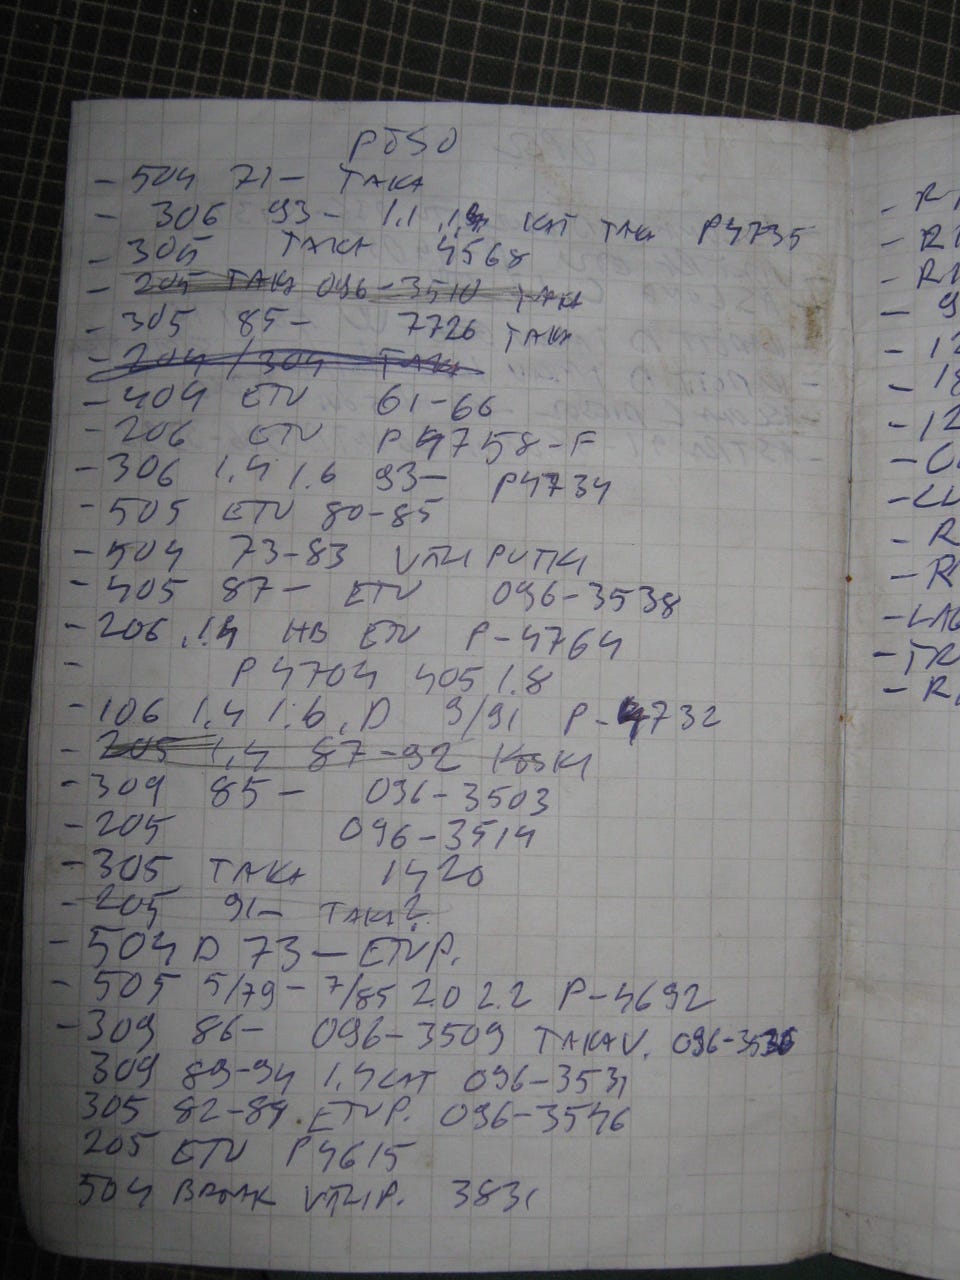 PÖSO
- 504 71- TAKA
- 306 93- 1.1 KAT TAK P4735
- 305 TAKA 4568
- 205 TAKA 096-3510 TAKA
- 305 85- 7726 TAKA
- 204/304 TAKA
- 404 ETU 61-66
- 206 ETU P4758-F
- 306 1.4 1.6 93- P4734
- 505 ETU 80-85
- 504 73-83 VÄLIPUTKI
- 405 87- ETU 096-3538
- 206 1.4 HB ETU P-4764
- P4704 405 1.8
- 106 1.4 1.6, D 9/91 P-4732
- 205 1,4 87-92 KESKI
- 309 85- 096-3503
- 205 096-3514
- 305 TAKA 1420
- 205 91- TAKA?
- 504 D 73- ETUP.
- 505 5/79- 7/85 2.0 2.2 P-4692
- 309 86- 096-3509 TAKAV. 096-3536
309 89-94 1.4 CAT 096-3531
305 82-89 ETUP. 096-3546
205 ETU P4615
504 BREAK VÄLIP. 3831
- R
- R
- R
- 9
- 12
- 18
- 12
- R
- R
- R